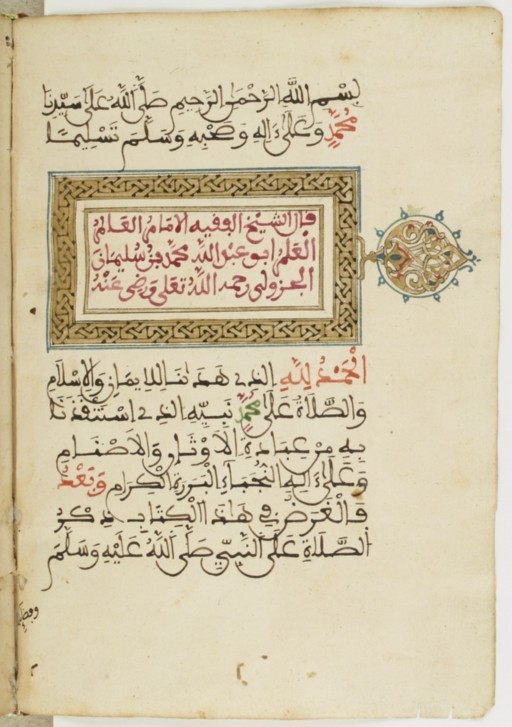 بِسْمِ اللَّهِ الرَّحْمَٰنِ الرَّحِيمِ صَلَّى اللَّهُ عَلَى سَيِّدِنَا
مُحَمَّدٍ وَعَلَىٰ ءَالِهِ وَصَحْبِهِ وَسَلَّمَ تَسْلِيمًا
قال الشيخ الفقيه الامام العالم
العلم ابو عبد الله محمد بن سليمان
الجزولي رحمه الله تعلى ورضي عنه
الْحَمْدُ لِلَّهِ الذي هَدَىٰنَا لِلإيمَانِ وَالإِسْلَامِ
وَالصَّلَاةُ عَلَىٰ مُحَمَّدٍ نَبِيِّهِ الذي اسْتَنْقَذَنَا
بِهِ مِنْ عِبَادَةِ الأَوْثَانِ وَالأَصْنَامِ
وَعَلَىٰ ءَالِهِ النُّجَبَاءِ الْبَرَرَةِ الْكِرَامِ وَبَعْدُ
فَالْغَرَضُ فِي هَذَا الْكِتَابِ ذِكْرُ
الصَّلَاةِ عَلَى النَّبِيِّ صَلَّى اللَّهُ عَلَيْهِ وَسَلَّمَ